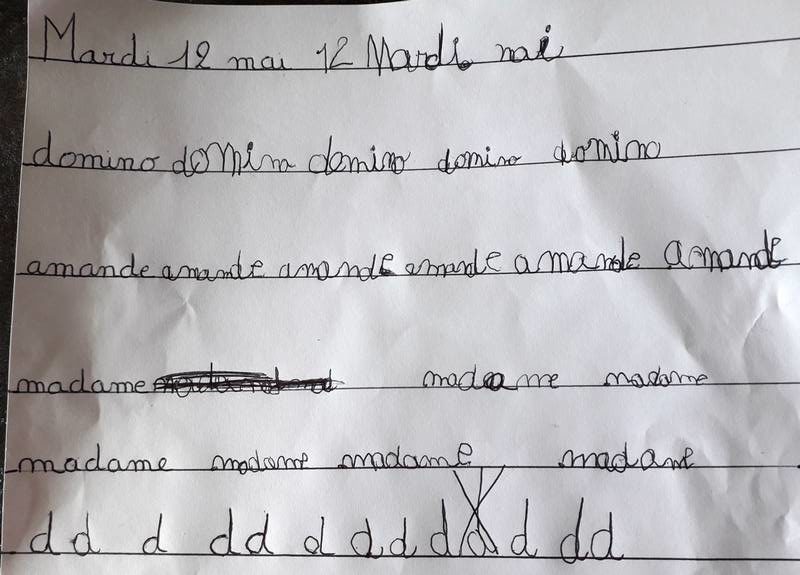 Mardi 12 mai 12 Mardi mai
domino domino domino domino domino
amande amande amande amande amande amande
madame madame madame
madame madame madame madame
d d d d d d d d d d d d d